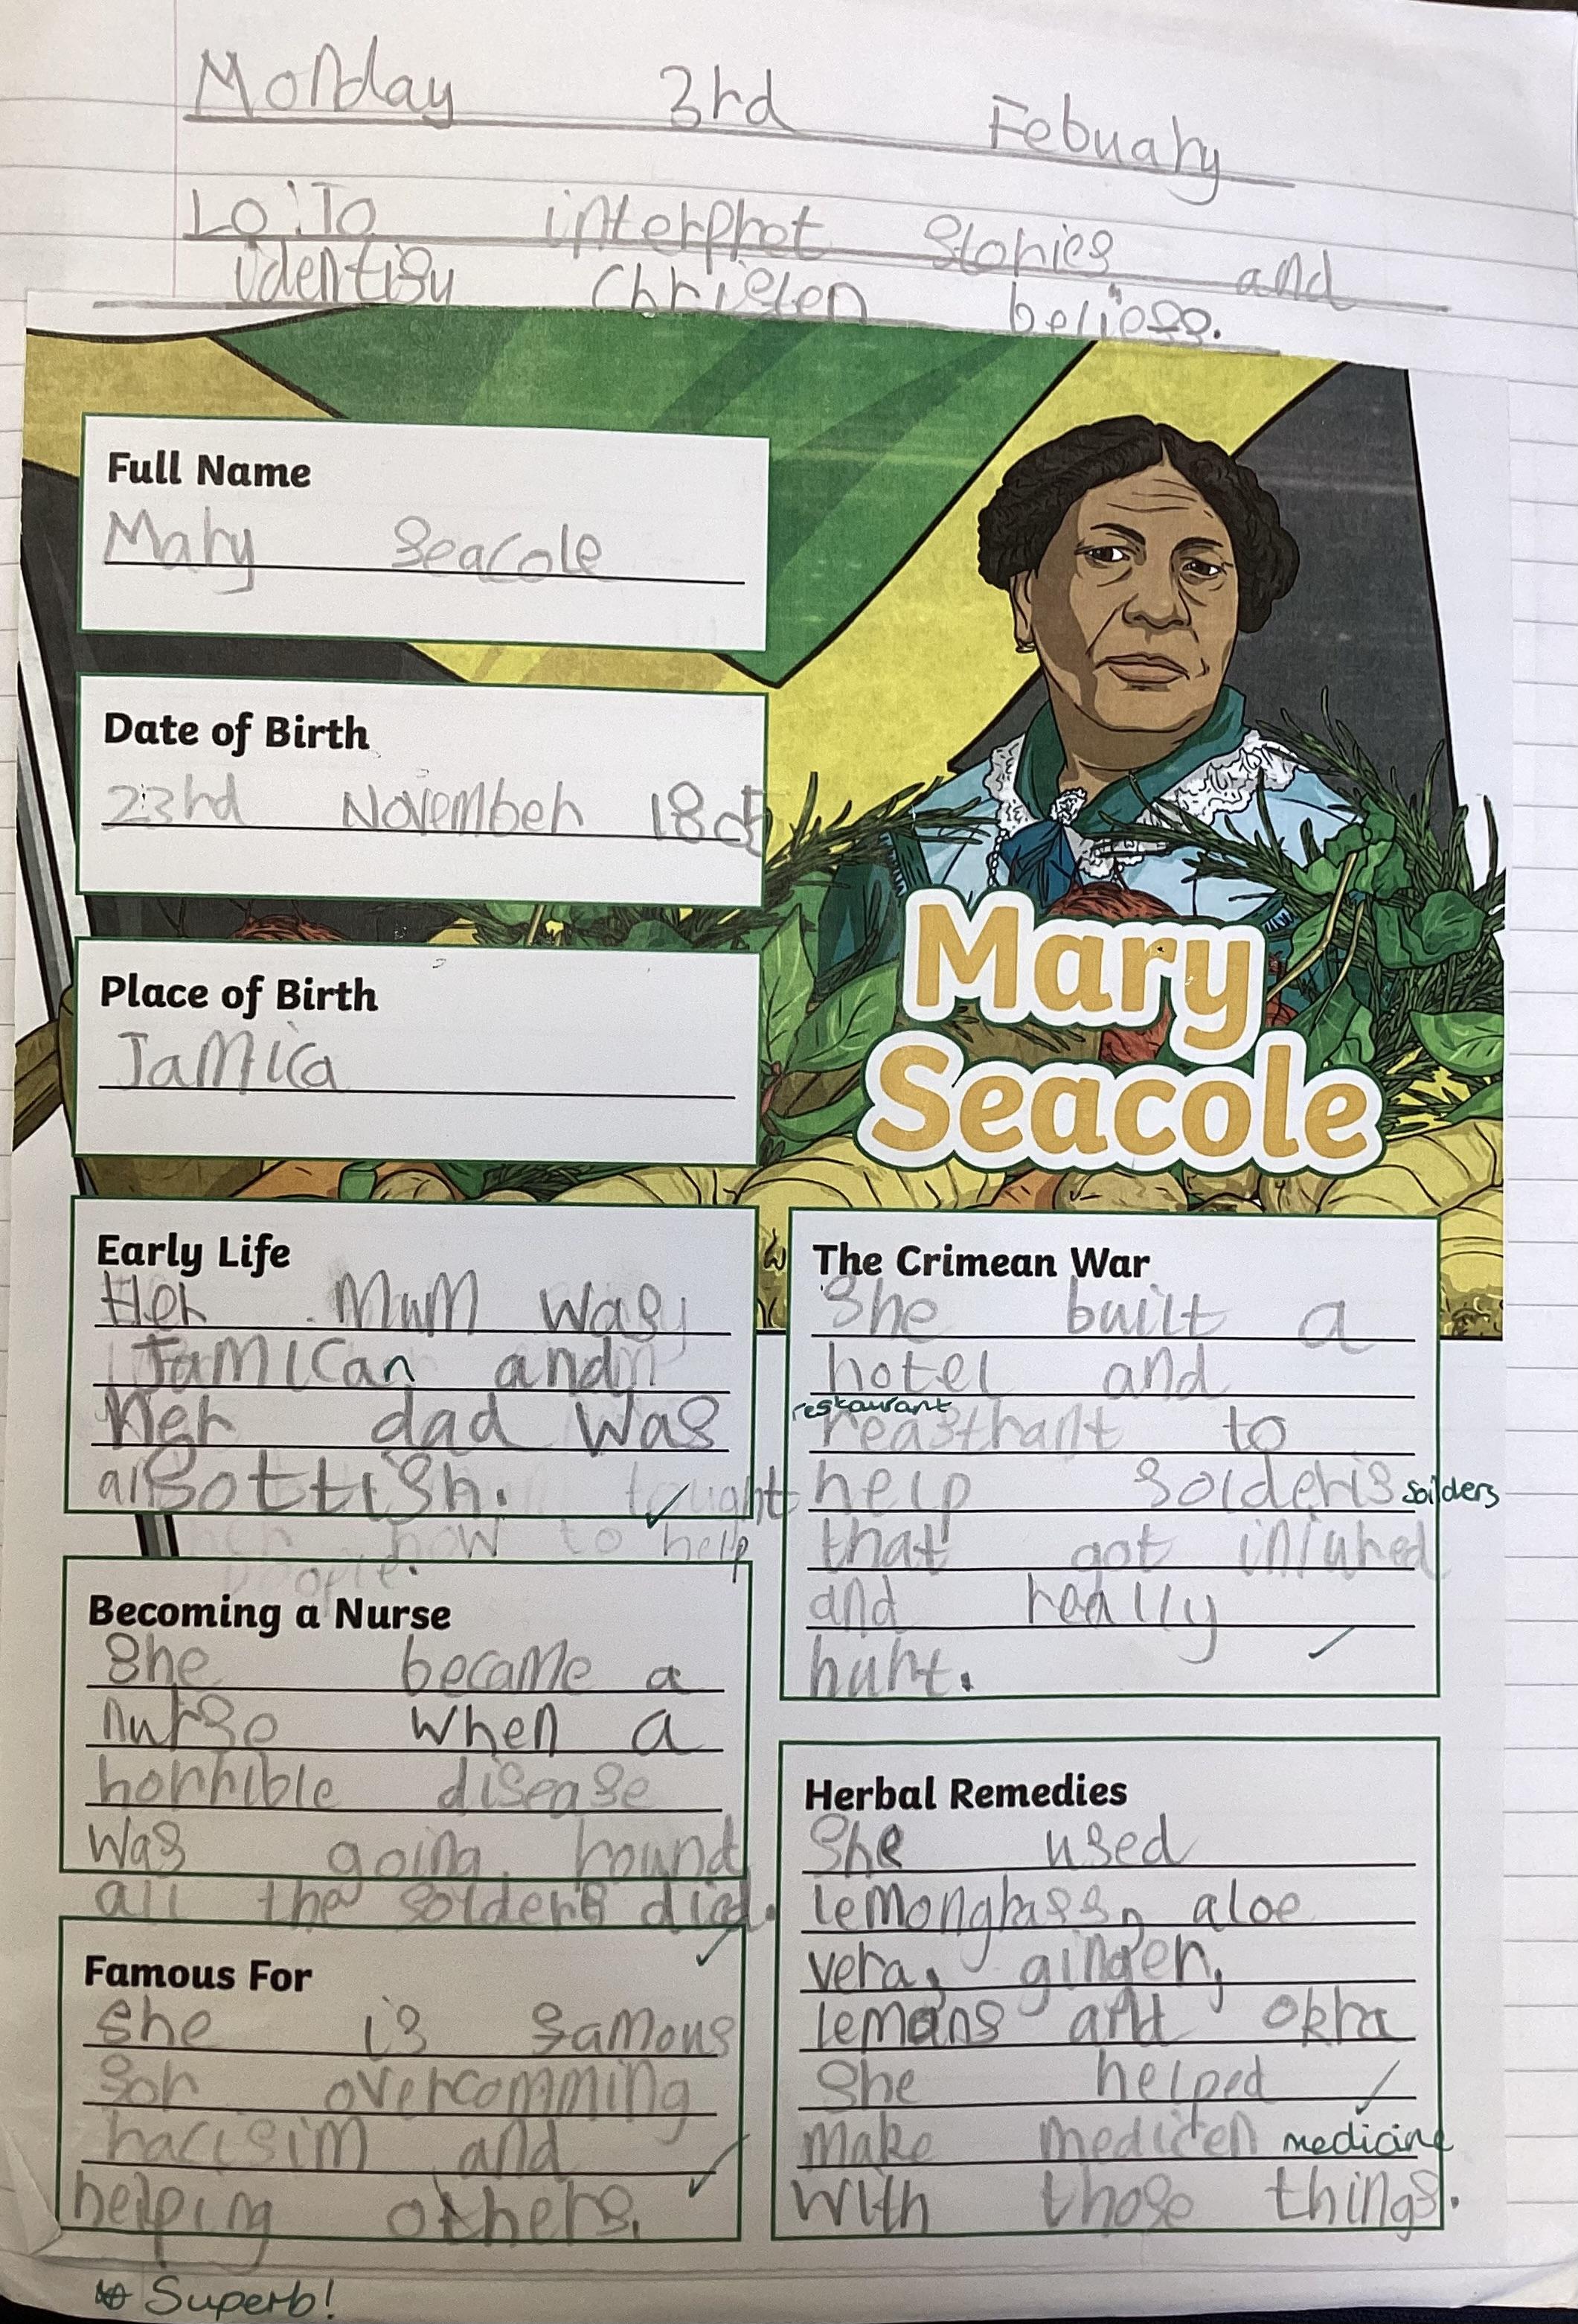 Monday 3rd Febuary
Lo: To interpret stories and
identify Christen beliefs.
Full Name
Mary Seacole
Date of Birth
23rd November 1805
Place of Birth
Jamica
Mary
Seacole
Early Life
Her Mum was
Jamican and
her dad was
Sottish.
tought
her how to help
people.
Becoming a Nurse
She became a
nurse when a
horrible disease
was going round
all the solders died.
Famous For
she is famous
for overcomming
racisim and
helping others.
The Crimean War
She built a
hotel and
restaurant
reasthant to
help solderis soilders
that got injured
and really
hurt.
Herbal Remedies
She used
lemongrass, aloe
vera, ginger,
lemons and okra
She helped
make medicen medicine
with those things.
Superb!